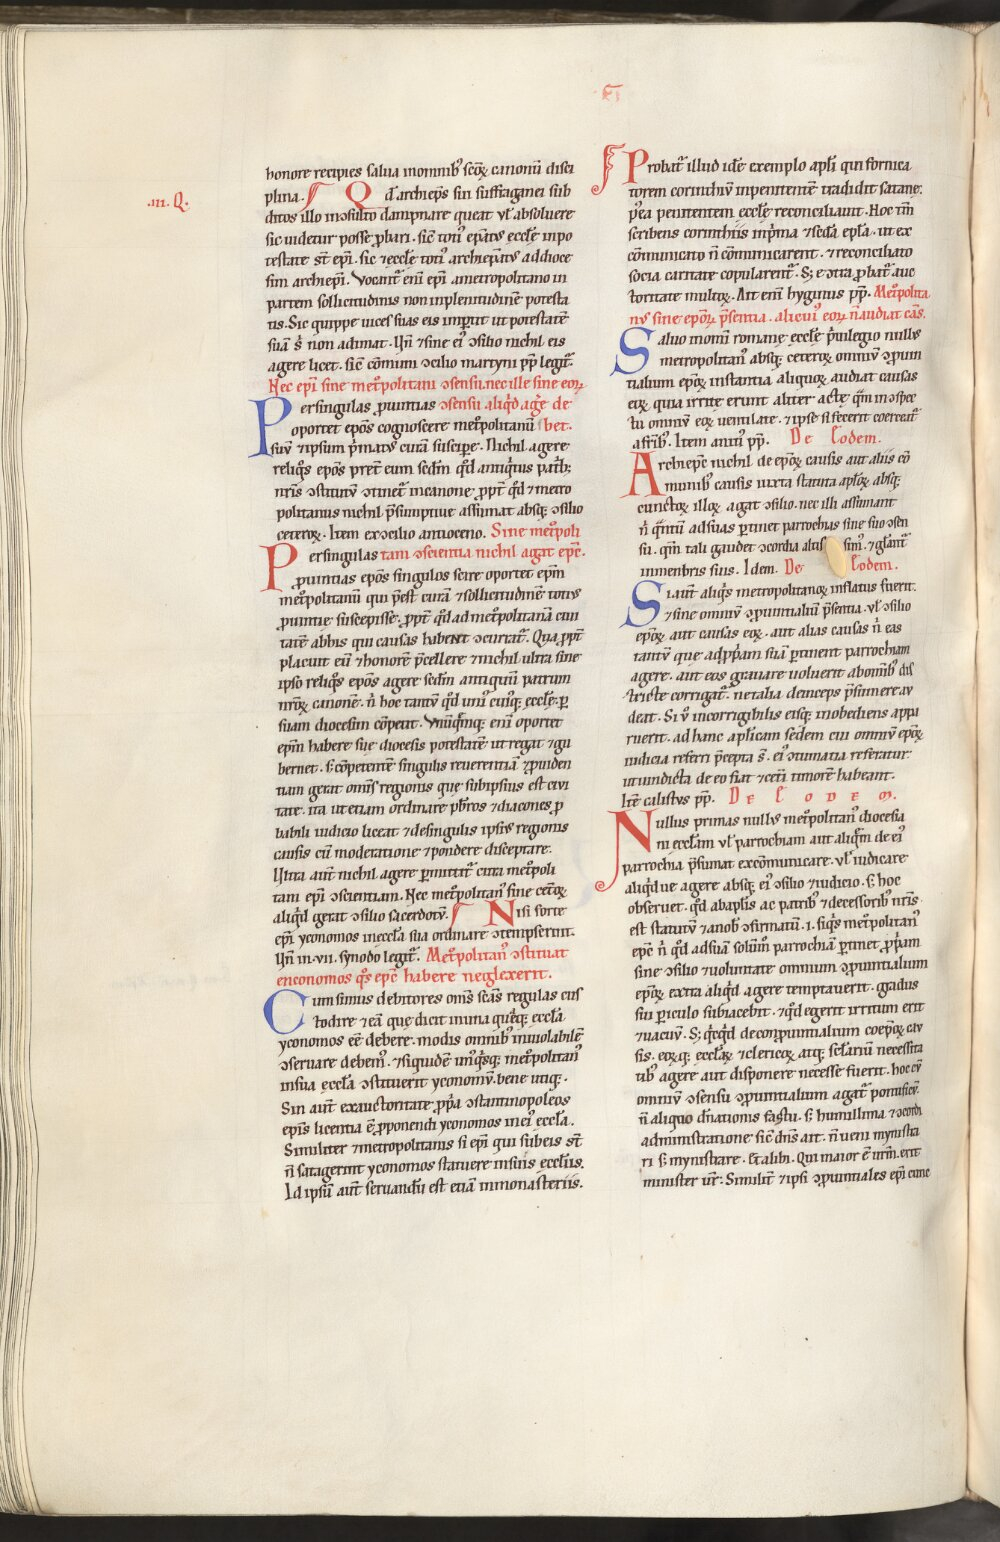 .iii. Q.
honore recipies salua in omnibꝰ scōꝝ canonū disci
plina. Qd archieps̄ sui suffraganei sub
ditos illo inc̄sulto dampnare queat ut̄ absoluere
sic uidetur posse ꝓbari. sic̄ totꝰ ep̄atus eccl̄e in po
testate st̄ ep̄i. sic ⁊ eccl̄e totꝰ archiep̄atus ad dioce
sim archiep̄i. Vocant̄ eni ep̄i a metropolitano in
partem sollicitudinis non in plenitudinē potesta
tis. Sic quippe uices suas eis imꝑtit ut potestatē
suā s̄ non adimat. Un̄ ⁊ sine eiꝰ ꝯsilio nichil eis
agere licet. sic̄ in cōmuni ꝯcilio martyni pp̄ legit̄.
Nec ep̄i sine met̄politani ꝯsensu. nec ille sine eoꝝ
Per singulas ꝓuintias ꝯsensu aliqd agere de
oportet ep̄os cognoscere met̄politanū bet.
suū ⁊ ipsum p̄matus curā suscipe. Nichil agere
reliqs ep̄os pret̄ eum scdm̄ qd antiqtus patribꝫ
nr̄is ꝯstitutū ꝯtinet̄ in canone. ꝓpt̄ qd ⁊ metro
politanus nichil p̄sumptiue assumat absqꝫ ꝯsilio
ceteroꝝ. Item ex ꝯcilio antioceno. Sine met̄poli
Per singulas tani ꝯscientia nichil agat ep̄c.
ꝓuintias ep̄os singulos scire oportet ep̄m
met̄politanū qui p̄est curā ⁊ sollicitudinē totiꝰ
ꝓuintie suscepisse. ꝓpt̄ qd ad met̄politanā ciui
tatē ab his qui causas habent ꝯcurrat̄. Qua ꝓpt̄
placuit eū ⁊ honorē p̄cellere ⁊ nichil ultra sine
ipso reliqs ep̄os agere scdm̄ antiquū patrum
nr̄oꝝ canonē. n̄ hoc tantū qd uniꝰ cuiqꝫ eccl̄e ꝑ
suam diocesim cōpetit. Vnūqmqꝫ eni oportet
ep̄m habere sue diocesis potestatē ut regat ⁊ gu
bernet. s̄ cōpetentē singulis reuerentiā ⁊ ꝓuiden
tiam gerat omis̄ regionis que sub ipsius est ciui
tate. ita ut etiam ordinare pb̄ros ⁊ diacones ꝓ
babili iudicio liceat ⁊ de singulis ipsiꝰ regionis
causis cū moderatione ⁊ pondere disceptare.
Ultra aut̄ nichil agere ꝑmittit̄ citra met̄poli
tam ep̄i ꝯscientiam. Nec met̄politanꝰ sine cet̄oꝝ
aliqd gerat ꝯsilio sacerdotū. Nisi forte
ep̄i yconomos in eccl̄a sua ordinare ꝯtempserint.
Un̄ in .vii. synodo legit̄. Met̄politanꝰ ꝯstituat
enconomos qs ep̄c habere neglexerit.
Cum simus debitores omis̄ scās regulas cus
todire ⁊ eā que dicit in una quaqꝫ eccl̄a
yconomos eē debere. modis omnibꝰ inuiolabilē
ꝯseruare debemꝰ. ⁊ siquidē unqsqꝫ met̄politanꝰ
in sua eccl̄a ꝯstituerit yconomū. bene utiqꝫ.
Sin aut̄ ex auctoritate ꝓpa ꝯstantinopoleos
ep̄is licentia ē ꝓponendi yconomos in eiꝰ eccl̄a.
Similiter ⁊ metropolitanis si ep̄i qui sub eis st̄
n̄ satagerint yconomos statuere in suis eccl̄iis.
Id ipsū aut̄ seruandū est etiā in monasteriis.
Probat̄ illud idē exemplo apl̄i qui fornica
torem corinthiū inpenitentē tradidit satane:
pꝰea penitentem eccl̄e reconciliauit. Hoc tn̄
scribens corinthiis in p̄ma ⁊ scdā epl̄a. ut ex
cōmunicato n̄ cōmunicarent. ⁊ reconciliato
socia caritate copularent̄. Sꝫ ecōtra ꝓbat̄ auc
toritate multoꝝ. Ait eni hyginus pp̄. Met̄polita
nus sine ep̄oꝝ p̄sentia. alicuiꝰ eoꝝ n̄ audiat cās.
Saluo in om̄i romane eccl̄e p̄uilegio nullus
metropolitanꝰ absqꝫ ceteroꝝ omniū ꝯꝓuin
tialium ep̄oꝝ instantia aliquoꝝ audiat causas
eoꝝ. quia irrite erunt aliter acte qm in ꝯspec
tu omniū eoꝝ uentilate. ⁊ ipse si fecerit coerceat̄
a frībꝰ. Item anitiꝰ pp̄. De Eodem.
Archiep̄c nichil de ep̄oꝝ causis aut aliis cō
munibꝰ causis iuxta statuta apl̄oꝝ absqꝫ
cunctoꝝ illoꝝ agat ꝯsilio. nec illi assumant
n̄ quntū ad suas ꝑtinet parrochias sine suo ꝯsen
su. qm tali gaudet ꝯcordia altissimꝰ. ⁊ glat̄
in menbris suis. Idem. De Eodem.
Si aut̄ aliqs metropolitanoꝝ inflatus fuerit.
⁊ sine omniū ꝯꝓuintialiū p̄sentia. ut̄ ꝯsilio
ep̄oꝝ. aut causas eoꝝ. aut alias causas n̄ eas
tantū que ad ꝓpam suā ꝑtinent parrochiam
agere. aut eos grauare uoluerit ab omibꝰ dis
tricte corrigat̄. ne talia deinceps p̄sumere au
deat. Si ū incorrigibilis eisqꝫ inobediens appa
ruerit. ad hanc aplicam sedem cui omniū ep̄oꝝ
iudicia referri p̄cepta s̄. eiꝰ ꝯtumatia referatur.
ut uindicta de eo fiat ⁊ cet̄i timorē habeant.
Itē calistus pp̄. De Eodem.
Nullus primas nullus met̄politanꝰ diocesia
ni eccl̄am ut̄ parrochiam aut aliqm de eiꝰ
parrochia p̄sumat excōmunicare. ut̄ iudicare
aliqd ue agere absqꝫ eiꝰ ꝯsilio ⁊ iudicio. s̄ hoc
obseruet. qd ab aplis ac patribꝰ ⁊ decessoribꝰ nr̄is
est statutū ⁊ a nob̄ ꝯfirmatū. i. siqs met̄politanꝰ
ep̄c n̄ qd ad suā solūm̄ parrochiā ꝑtinet ꝓpam
sine ꝯsilio ⁊ uoluntate omnium ꝯꝓuintialium
ep̄oꝝ extra aliqd agere temptauerit. gradus
sui ꝑiculo subiacebit. ⁊ qd egerit irritum erit
⁊ uacuū. Sꝫ qcqd de conꝓuintialium coep̄oꝝ cau
sis. eoꝝqꝫ eccl̄aꝝ ⁊ clericoꝝ atqꝫ sel̄ariū necessita
tibꝰ agere aut disponere necesse fuerit. hoc cū
omniū ꝯsensu ꝯꝓuintialium agat̄ pontificū.
n̄ aliquo dn̄ationis fastu. s̄ humillima ⁊ ꝯcordi
administratione sic̄ dn̄s ait. n̄ ueni mynistra
ri s̄ mynistrare. Et alibi. Qui maior ē ur̄m. erit
minister ur̄. Similit̄ ⁊ ipsi ꝯꝓuintiales ep̄i cume